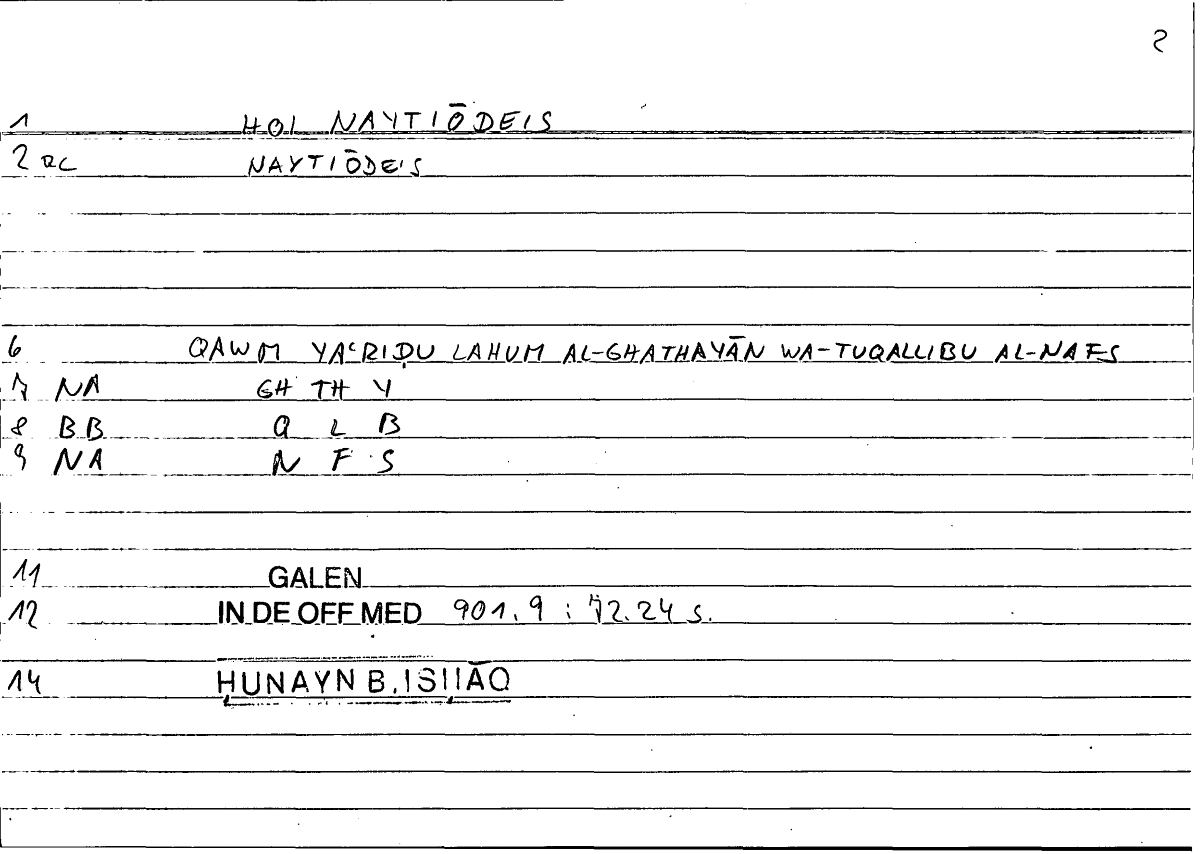 2
1 HOI NAYTIŌDEIS
2 RC NAYTIŌDEIS
6 QAWM YAʿRIḌU LAHUM AL-GHATHAYĀN WA-TUQALLIBU AL-NAFS
7 NA GH TH Y
8 BB Q L B
9 NA N F S
11 GALEN
12 IN DE OFF MED 901.9 : 72.24 s.
14 ḤUNAYN B. ISḤĀQ